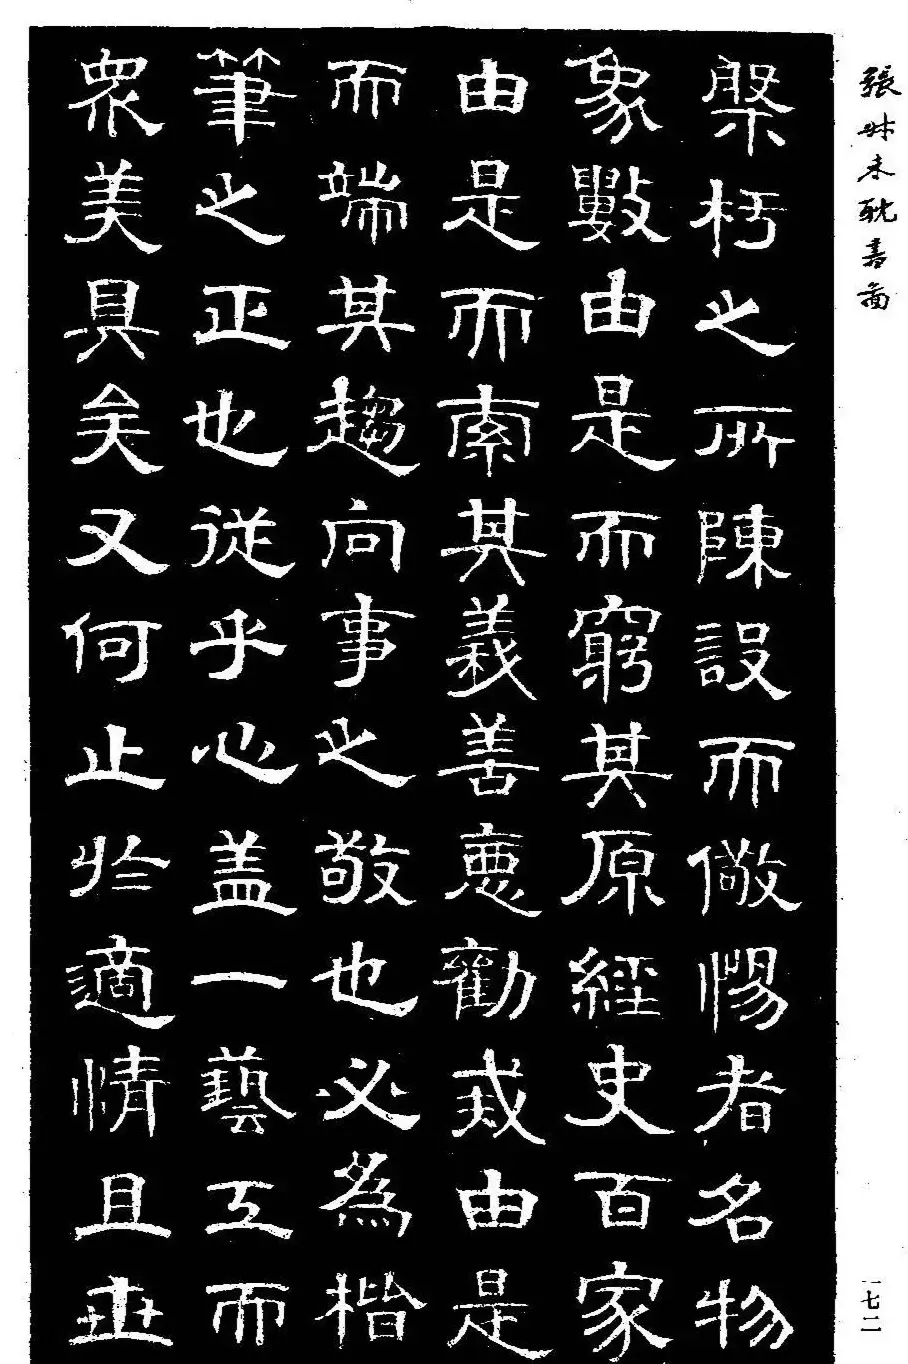 張叔未耽書圖
槃杅之所陳設而儆惕者名物
象數由是而窮其原經史百家
由是而索其義善惡勸戒由是
而端其趨向事之敬也必為楷
筆之正也從乎心盖一藝工而
眾美具矣又何止於適情且垂
一七二